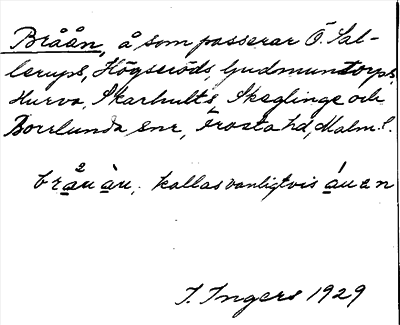 Bråån, å som passerar Ö. Sal-
lerups, Högseröds, Gudmuntorps,
Hurva, Skarhults, Skeglinge och
Borrlunda snr, Frosta hd, Malm. l.
bråu àu, kallas vanligtvis áuen
I. Ingers 1929